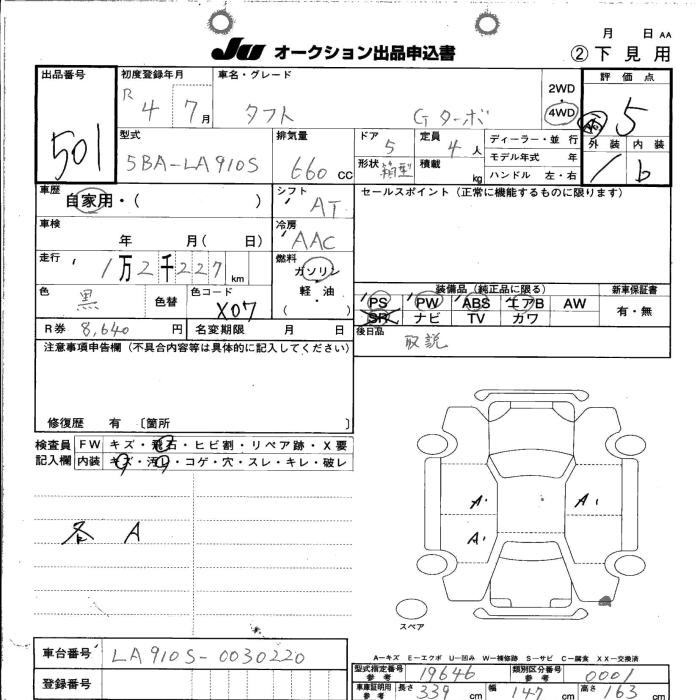 月 日 AA
JU オークション出品申込書 ②下見用
出品番号 初度登録年月 車名・グレード 評価点
501 R 4 7月 タフト Gターボ 2WD 4WD 5
型式 排気量 ドア 定員 ディーラー・並行 外装 内装
5BA-LA910S 660 CC 5 4人 モデル年式 年 b
形状 箱型 積載 kg ハンドル 左・右
車歴 自家用・( ) シフト AT セールスポイント(正常に機能するものに限ります)
車検 年 月( 日) 冷房 AAC
走行 1万2千227km 燃料 ガソリン 軽・油 ( )
色 黒 色替 色コード X07
装備品(純正品に限る) 新車保証書
PS PW ABS エアB AW 有・無
SR ナビ TV カワ
R券 8,640円 名変期限 月 日 後日品 取説
注意事項申告欄(不具合内容等は具体的に記入してください)
修復歴 有 〔箇所 〕
検査員 FW キズ・飛石・ヒビ割・リペア跡・X要
記入欄 内装 キズ・汚レ・コゲ・穴・スレ・キレ・破レ
各 A
A A
A
スペア
A-キズ E-エクボ U-凹み W-補修跡 S-サビ C-腐食 XX-交換済
車台番号 LA910S-0030220
型式指定番号 参考 19646 類別区分番号 参考 0001
登録番号
車庫証明用 参考 長さ 339 cm 幅 147 cm 高さ 163 cm